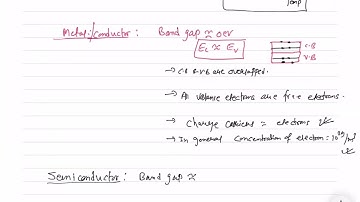 temp
Metal/conductor: Band gap ≈ 0eV
Ec ≈ Ev
C.B
V.B
→ C.B & V.B are overlapped.
→ All valence electrons are free electrons.
→ Charge carriers = electrons
→ In general concentration of electron = 10²⁹/m³
Semiconductor: Band gap ≈